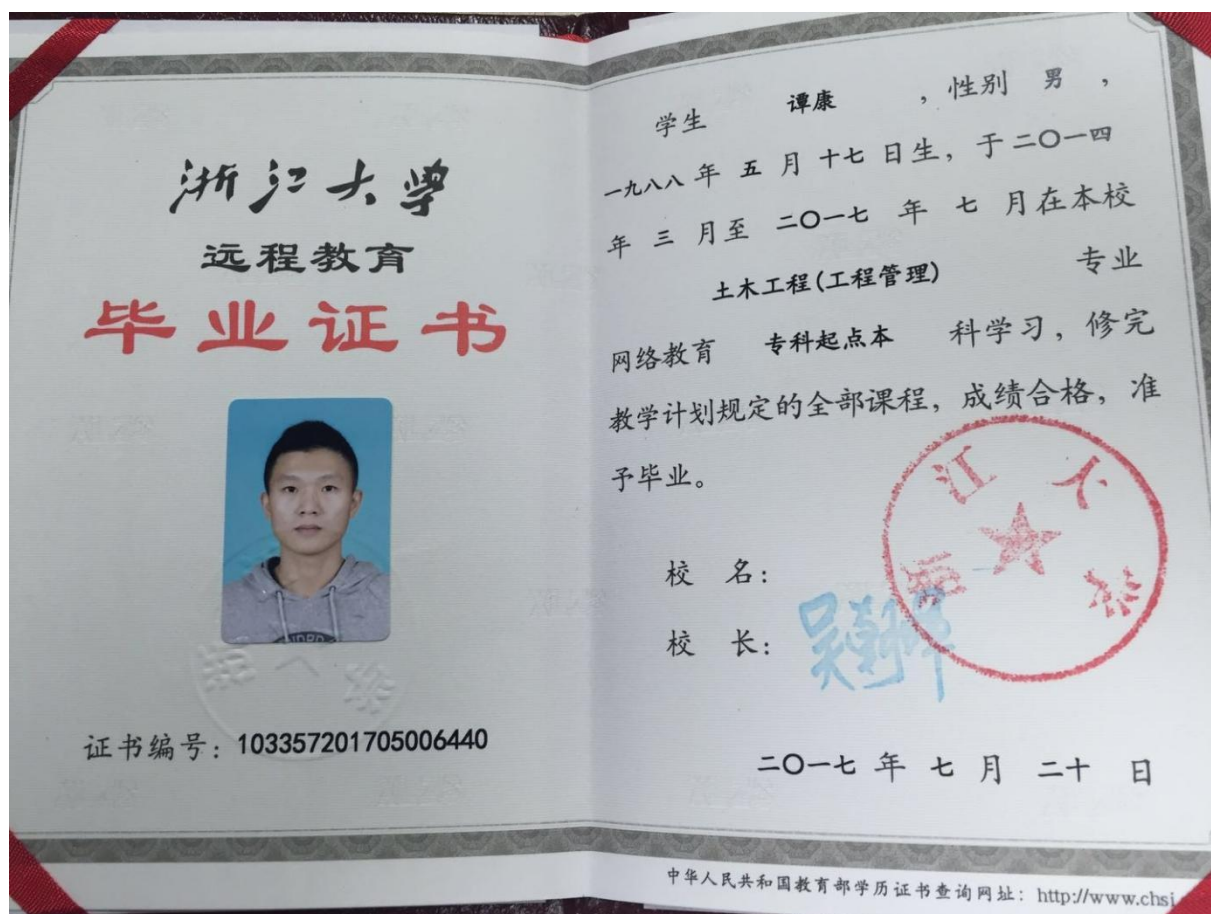 浙江大学
远程教育
毕业证书
证书编号：103357201705006440
学生 谭康 ，性别 男 ，
一九八八 年 五 月 十七 日生，于二〇一四
年 三 月至 二〇一七 年 七 月在本校
土木工程(工程管理) 专业
网络教育 专科起点本 科学习，修完
教学计划规定的全部课程，成绩合格，准
予毕业。
校 名：
校 长：
二〇一七 年 七 月 二十 日
中华人民共和国教育部学历证书查询网址：http://www.chsi